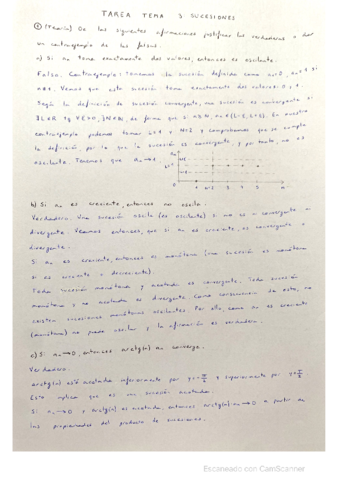 TAREA TEMA 3 SUCESIONES
① (Teoría) De las siguientes afirmaciones justificar las verdaderas o dar
un contraejemplo de las falsas.
a) Si an toma exactamente dos valores, entonces es oscilante.
Falso. Contraejemplo: Tomamos la sucesión definida como
Vemos que esta sucesión toma exactamente dos valores: 0, 1
Según la definición de sucesión convergente, una sucesión es convergente si
En nuestro
contraejemplo podemos tomar L=1 y N=2 y comprobamos que se cumple
la definición por lo que la sucesión es convergente y por tanto, no es
oscilante. Tenemos que an → 1
b) Si an es creciente, entonces no oscila.
Verdadero. Una sucesión oscila (es oscilante) si no es convergente o
divergente. Veamos entonces, que si an es creciente, es convergente o
divergente.
Si an es creciente, entonces es monótona (una sucesión es monótona
si es creciente o decreciente).
Toda sucesión monótona y acotada es convergente. Toda sucesión
monótona y no acotada es divergente. Como consecuencia de esto, no
existen sucesiones monótonas oscilantes. Por ello, como an es creciente
(monótona) no puede oscilar y la afirmación es verdadera.
c) Si an → 0, entonces arctg(n) an converge.
Verdadero.
arctg(n) está acotada inferiormente por y=-π/2 y superiormente por y=π/2
Esto implica que es una sucesión acotada.
Si an → 0 y arctg(n) es acotada, entonces arctg(n) an → 0 a partir de
las propiedades del producto de sucesiones.
Escaneado con CamScanner